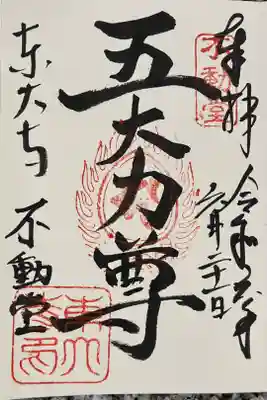 不動堂
奉拝
令和年
六月二十日
五大力尊
東大寺 不動堂